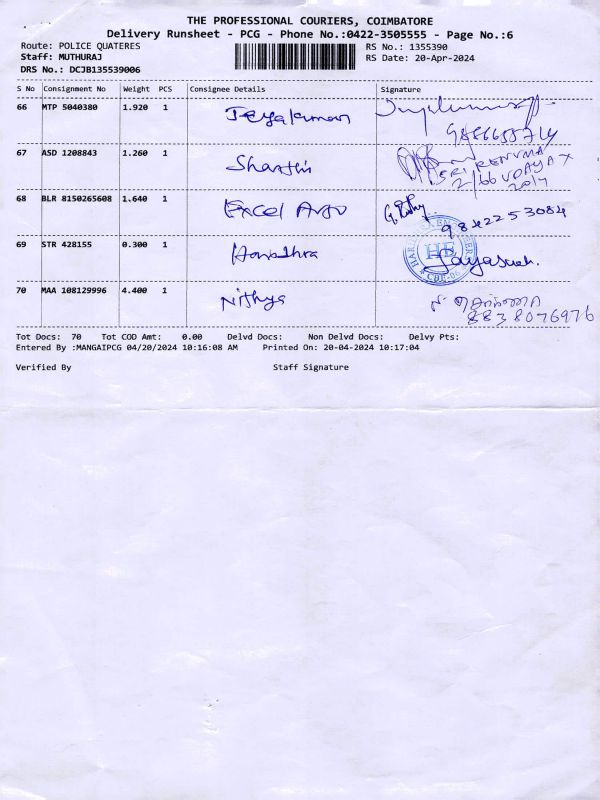 THE PROFESSIONAL COURIERS, COIMBATORE
Delivery Runsheet - PCG - Phone No.:0422-3505555 - Page No.:6
Route: POLICE QUATERES RS No.: 1355390
Staff: MUTHURAJ RS Date: 20-Apr-2024
DRS No.: DCJB135539006
S No Consignment No Weight PCS Consignee Details Signature
66 MTP 5040380 1.920 1 Jeyakumar
67 ASD 1208843 1.260 1 Shanthi
SRI RENUKA
68 BLR 8150265608 1.640 1 Excel
9842253084
69 STR 428155 0.300 1
70 MAA 108129996 4.400 1 Nithya
8838076976
Tot Docs: 70 Tot COD Amt: 0.00 Delvd Docs: Non Delvd Docs: Delvy Pts:
Entered By :MANGAIPCG 04/20/2024 10:16:08 AM Printed On: 20-04-2024 10:17:04
Verified By Staff Signature